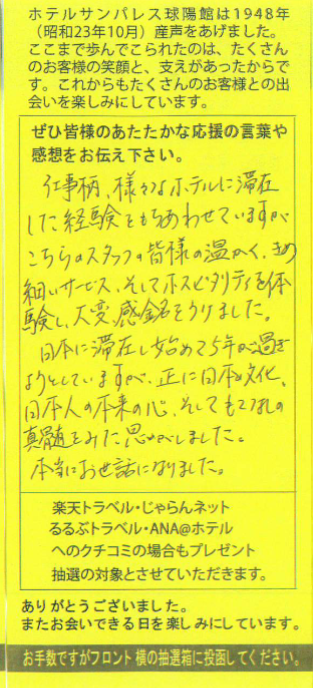 ホテルサンパレス球陽館は1948年
（昭和23年10月）産声をあげました。
ここまで歩んでこられたのは、たくさん
のお客様の笑顔と、支えがあったからで
す。これからもたくさんのお客様との出
会いを楽しみにしています。
ぜひ皆様のあたたかな応援の言葉や
感想をお伝え下さい。
仕事柄、様々なホテルに滞在
した経験をもちあわせていますが、
こちらのスタッフの皆様の温かく、きめ
細いサービス、そしてホスピタリティを体
験し、大変、感銘をうけました。
日本に滞在し始めて5年が過ぎ
ようとしていますが、正に日本文化、
日本人の本来の心、そしてもてなしの
真髄をみた思いがしました。
本当にお世話になりました。
楽天トラベル・じゃらんネット
るるぶトラベル・ANA@ホテル
へのクチコミの場合もプレゼント
抽選の対象とさせていただきます。
ありがとうございました。
またお会いできる日を楽しみにしています。
お手数ですがフロント横の抽選箱に投函してください。